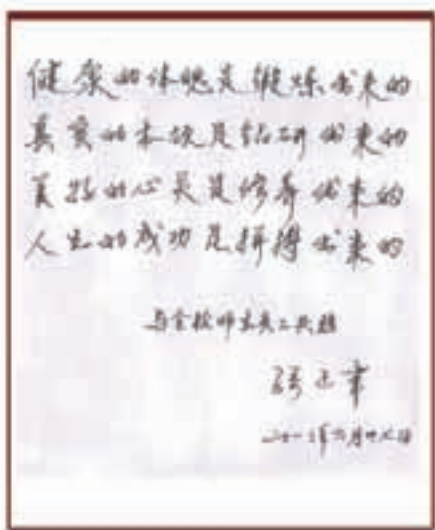 健康的体魄是锻炼出来的
真实的本领是钻研出来的
美好的心灵是修养出来的
人生的成功是拼搏出来的
与全校师生员工共勉
二〇一二年六月廿八日